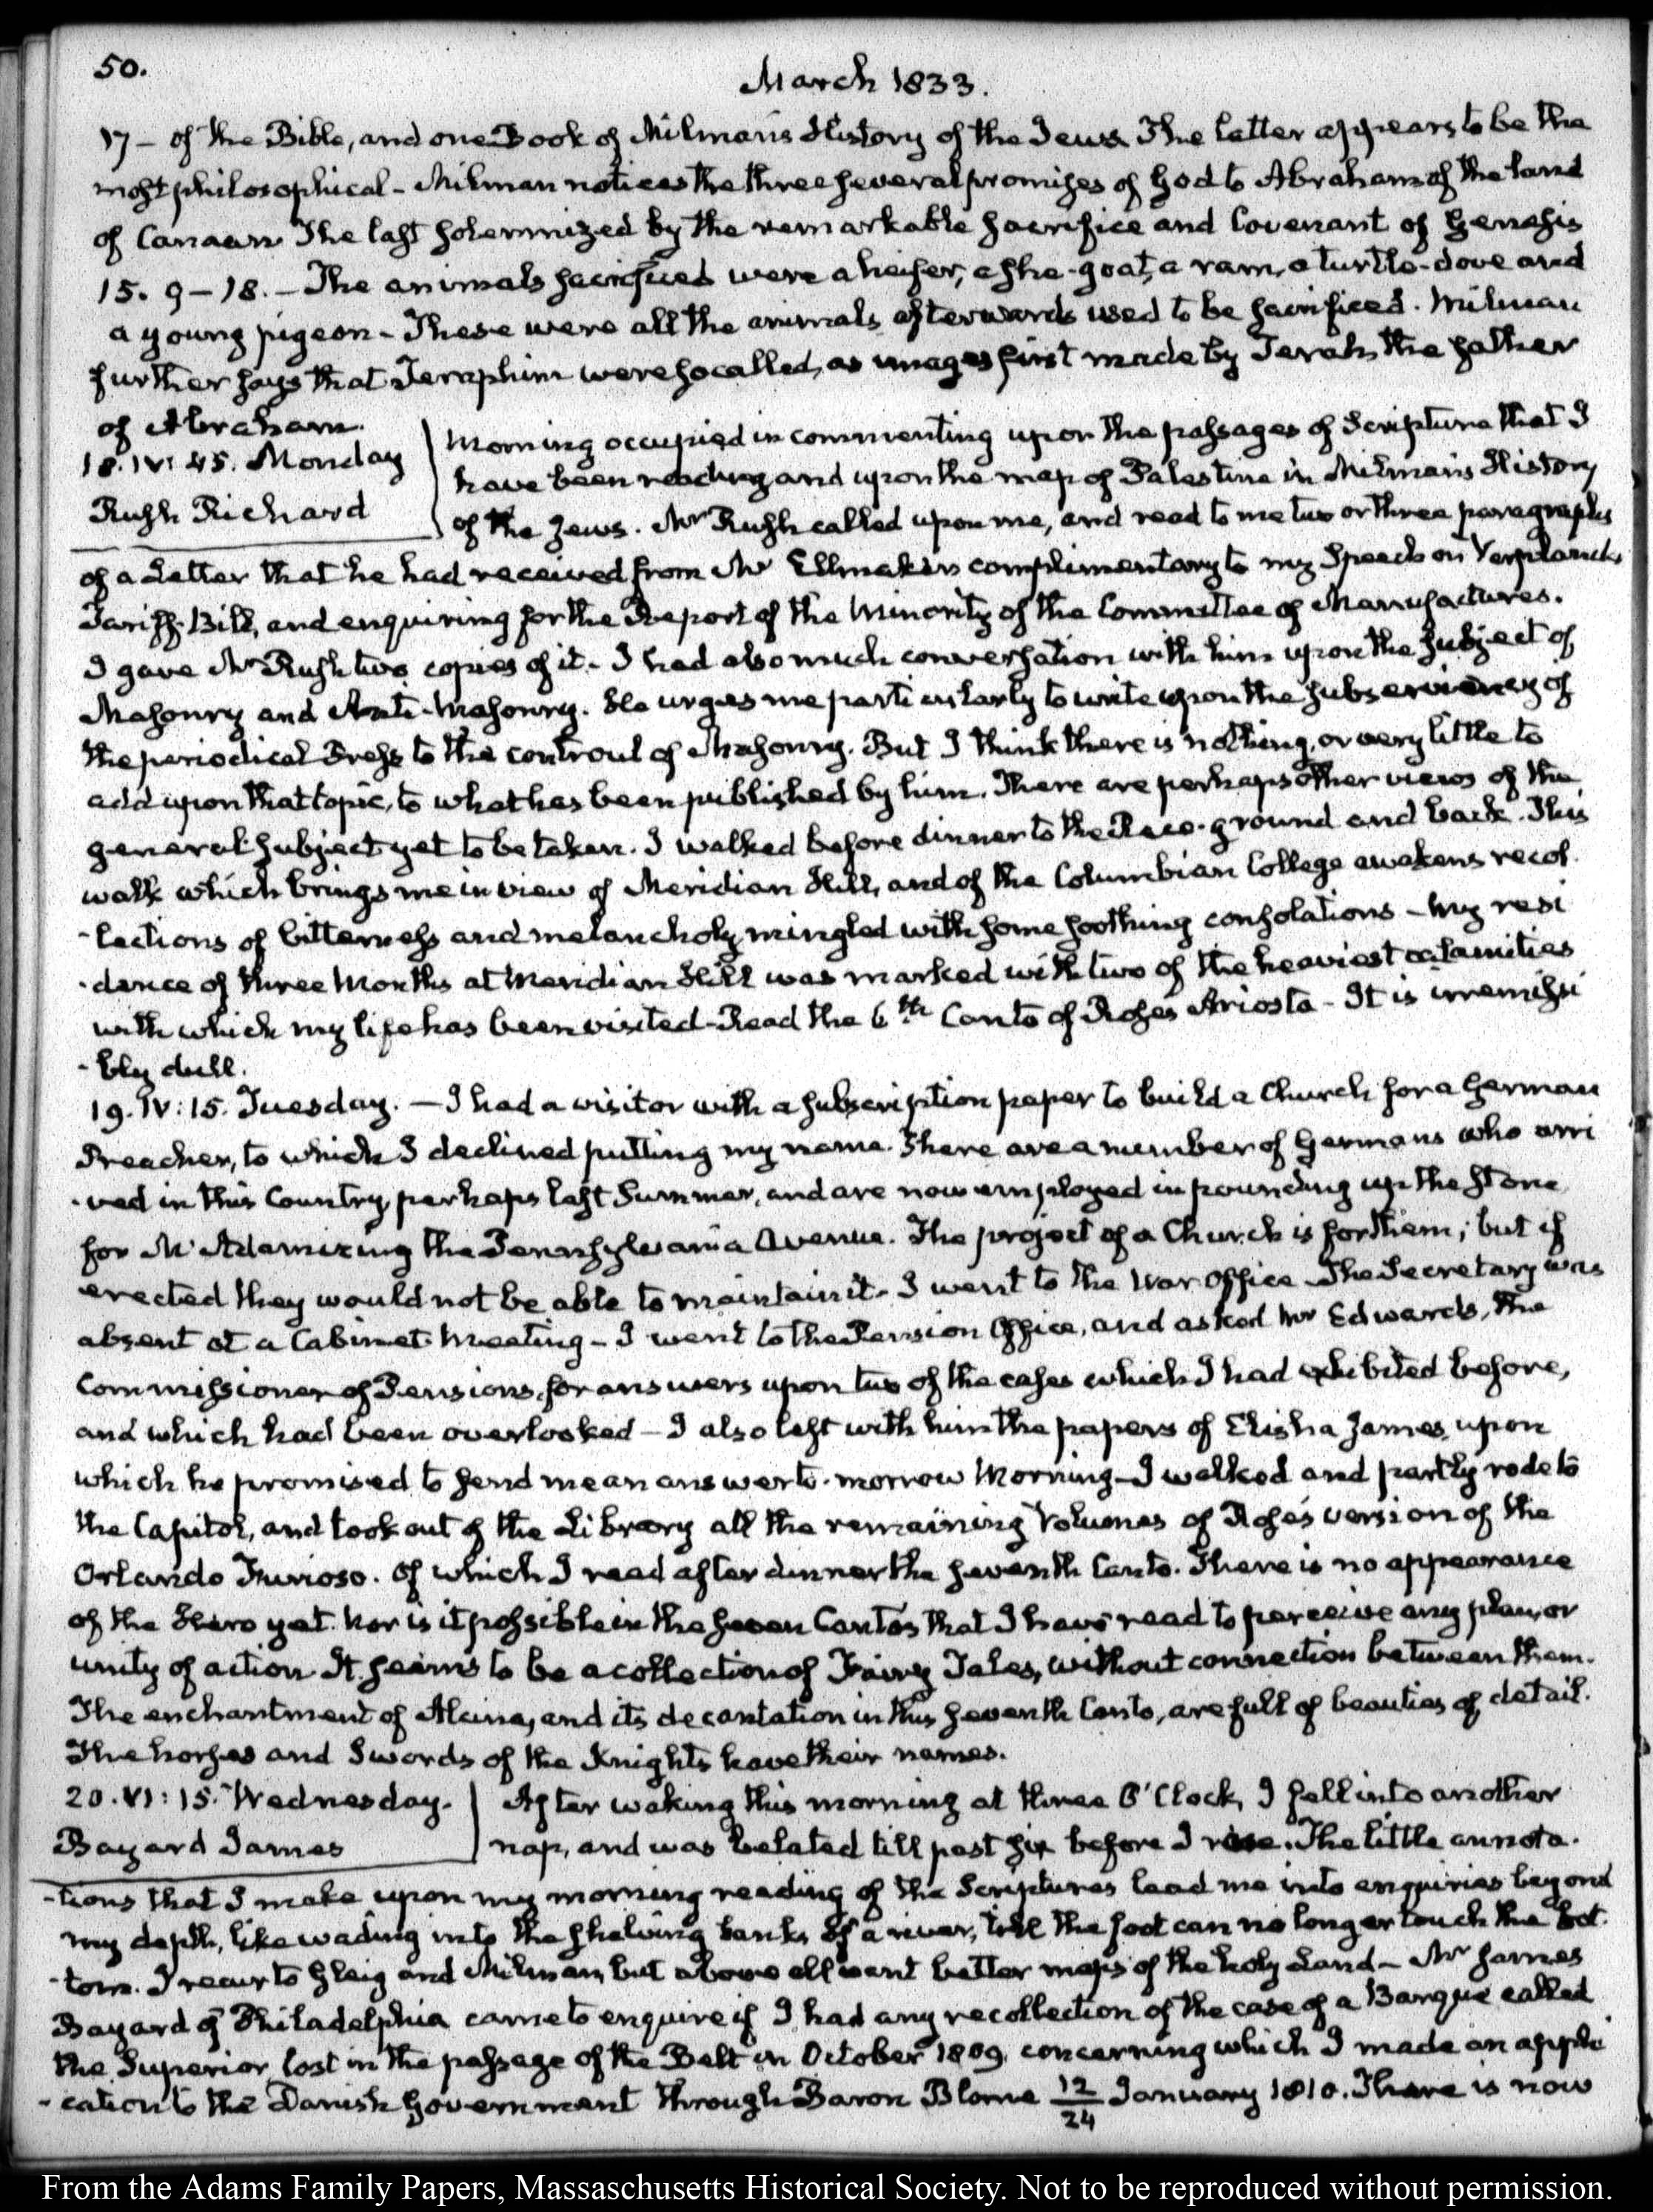 50.
March 1833.
17 – of the Bible, and one Book of Milman's History of the Jews. The latter appears to be the
most philosophical – Milman notices the three several promises of God to Abraham of the land
of Canaan. The last solemnized by the remarkable sacrifice and Covenant of Genesis
15. 9–18. – The animals sacrificed were a heifer, a she-goat, a ram, a turtle-dove and
a young pigeon – These were all the animals afterwards used to be sacrificed. Milman
further says that Teraphim were so called, as images first made by Terah, the father
of Abraham.
18. IV: 45. Monday
Rush Richard
Morning occupied in commenting upon the passages of Scripture that I
have been reading and upon the map of Palestine in Milman's History
of the Jews. Mr Rush called upon me, and read to me two or three paragraphs
of a Letter that he had received from Mr Ellmaker complimentary to my Speech on Verplanck's
Tariff-Bill, and enquiring for the Report of the Minority of the Committee of Manufactures.
I gave Mr Rush two copies of it – I had also much conversation with him upon the subject of
Masonry and Anti-Masonry. He urges me particularly to write upon the subserviency of
the periodical Press to the controul of Masonry. But I think there is nothing, or very little to
add upon that topic, to what has been published by him. There are perhaps other views of the
general subject yet to be taken. I walked before dinner to the Race-ground and back. This
walk which brings me in view of Meridian Hill, and of the Columbian College awakens recol
-lections of bitterness and melancholy, mingled with some soothing consolations – My resi
-dence of three Months at Meridian Hill was marked with two of the heaviest calamities
with which my life has been visited – Read the 6th Canto of Rose's Ariosto – It is irremissi
-bly dull.
19. IV: 15. Tuesday. — I had a visitor with a subscription paper to build a Church for a German
Preacher, to which I declined putting my name. There are a number of Germans who arri
-ved in this Country, perhaps last Summer, and are now employed in pounding up the stone
for McAdamizing the Pennsylvania Avenue. The project of a Church is for them; but if
erected they would not be able to maintain it – I went to the War Office – The Secretary was
absent at a Cabinet-Meeting – I went to the Pension Office, and asked Mr Edwards, the
Commissioner of Pensions, for answers upon two of the cases which I had exhibited before,
and which had been overlooked – I also left with him the papers of Elisha James, upon
which he promised to send me an answer to-morrow Morning – I walked and partly rode to
the Capitol, and took out of the Library all the remaining Volumes of Rose's version of the
Orlando Furioso. Of which I read after dinner the seventh Canto. There is no appearance
of the Hero yet. Nor is it possible in the seven Cantos that I have read to perceive any plan, or
unity of action. It seems to be a collection of Fairy Tales, without connection between them.
The enchantment of Alcina, and its decantation in this seventh Canto, are full of beauties of detail.
The horses and Swords of the Knights have their names.
20. VI: 15. Wednesday.
Bayard James
After waking this morning at three O'Clock, I fell into another
nap, and was belated till past six before I rose. The little annota-
-tions that I make upon my morning reading of the Scriptures lead me into enquiries beyond
my depth, like wading into the shelving banks of a river, till the foot can no longer touch the bot
-tom. I recur to Gleig and Milman, but above all want better maps of the holy Land – Mr James
Bayard of Philadelphia came to enquire if I had any recollection of the case of a Barque called
the Superior lost in the passage of the Belt in October 1809. concerning which I made an appli
-cation to the Danish Government through Baron Blome 12/24 January 1810. There is now
From the Adams Family Papers, Massaschusetts Historical Society. Not to be reproduced without permission.